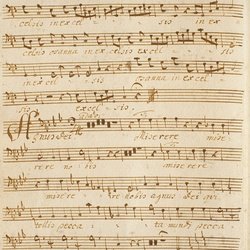 celsis in excel sis in ex
celsis osanna in excelsis excel
sis in excel sis osanna in excel
sis excel sis.
Agnus Dei Miserere mise
rere no bis miserere
misere re nobis agnus Dei qui
tollis pecca ta mundi pecca